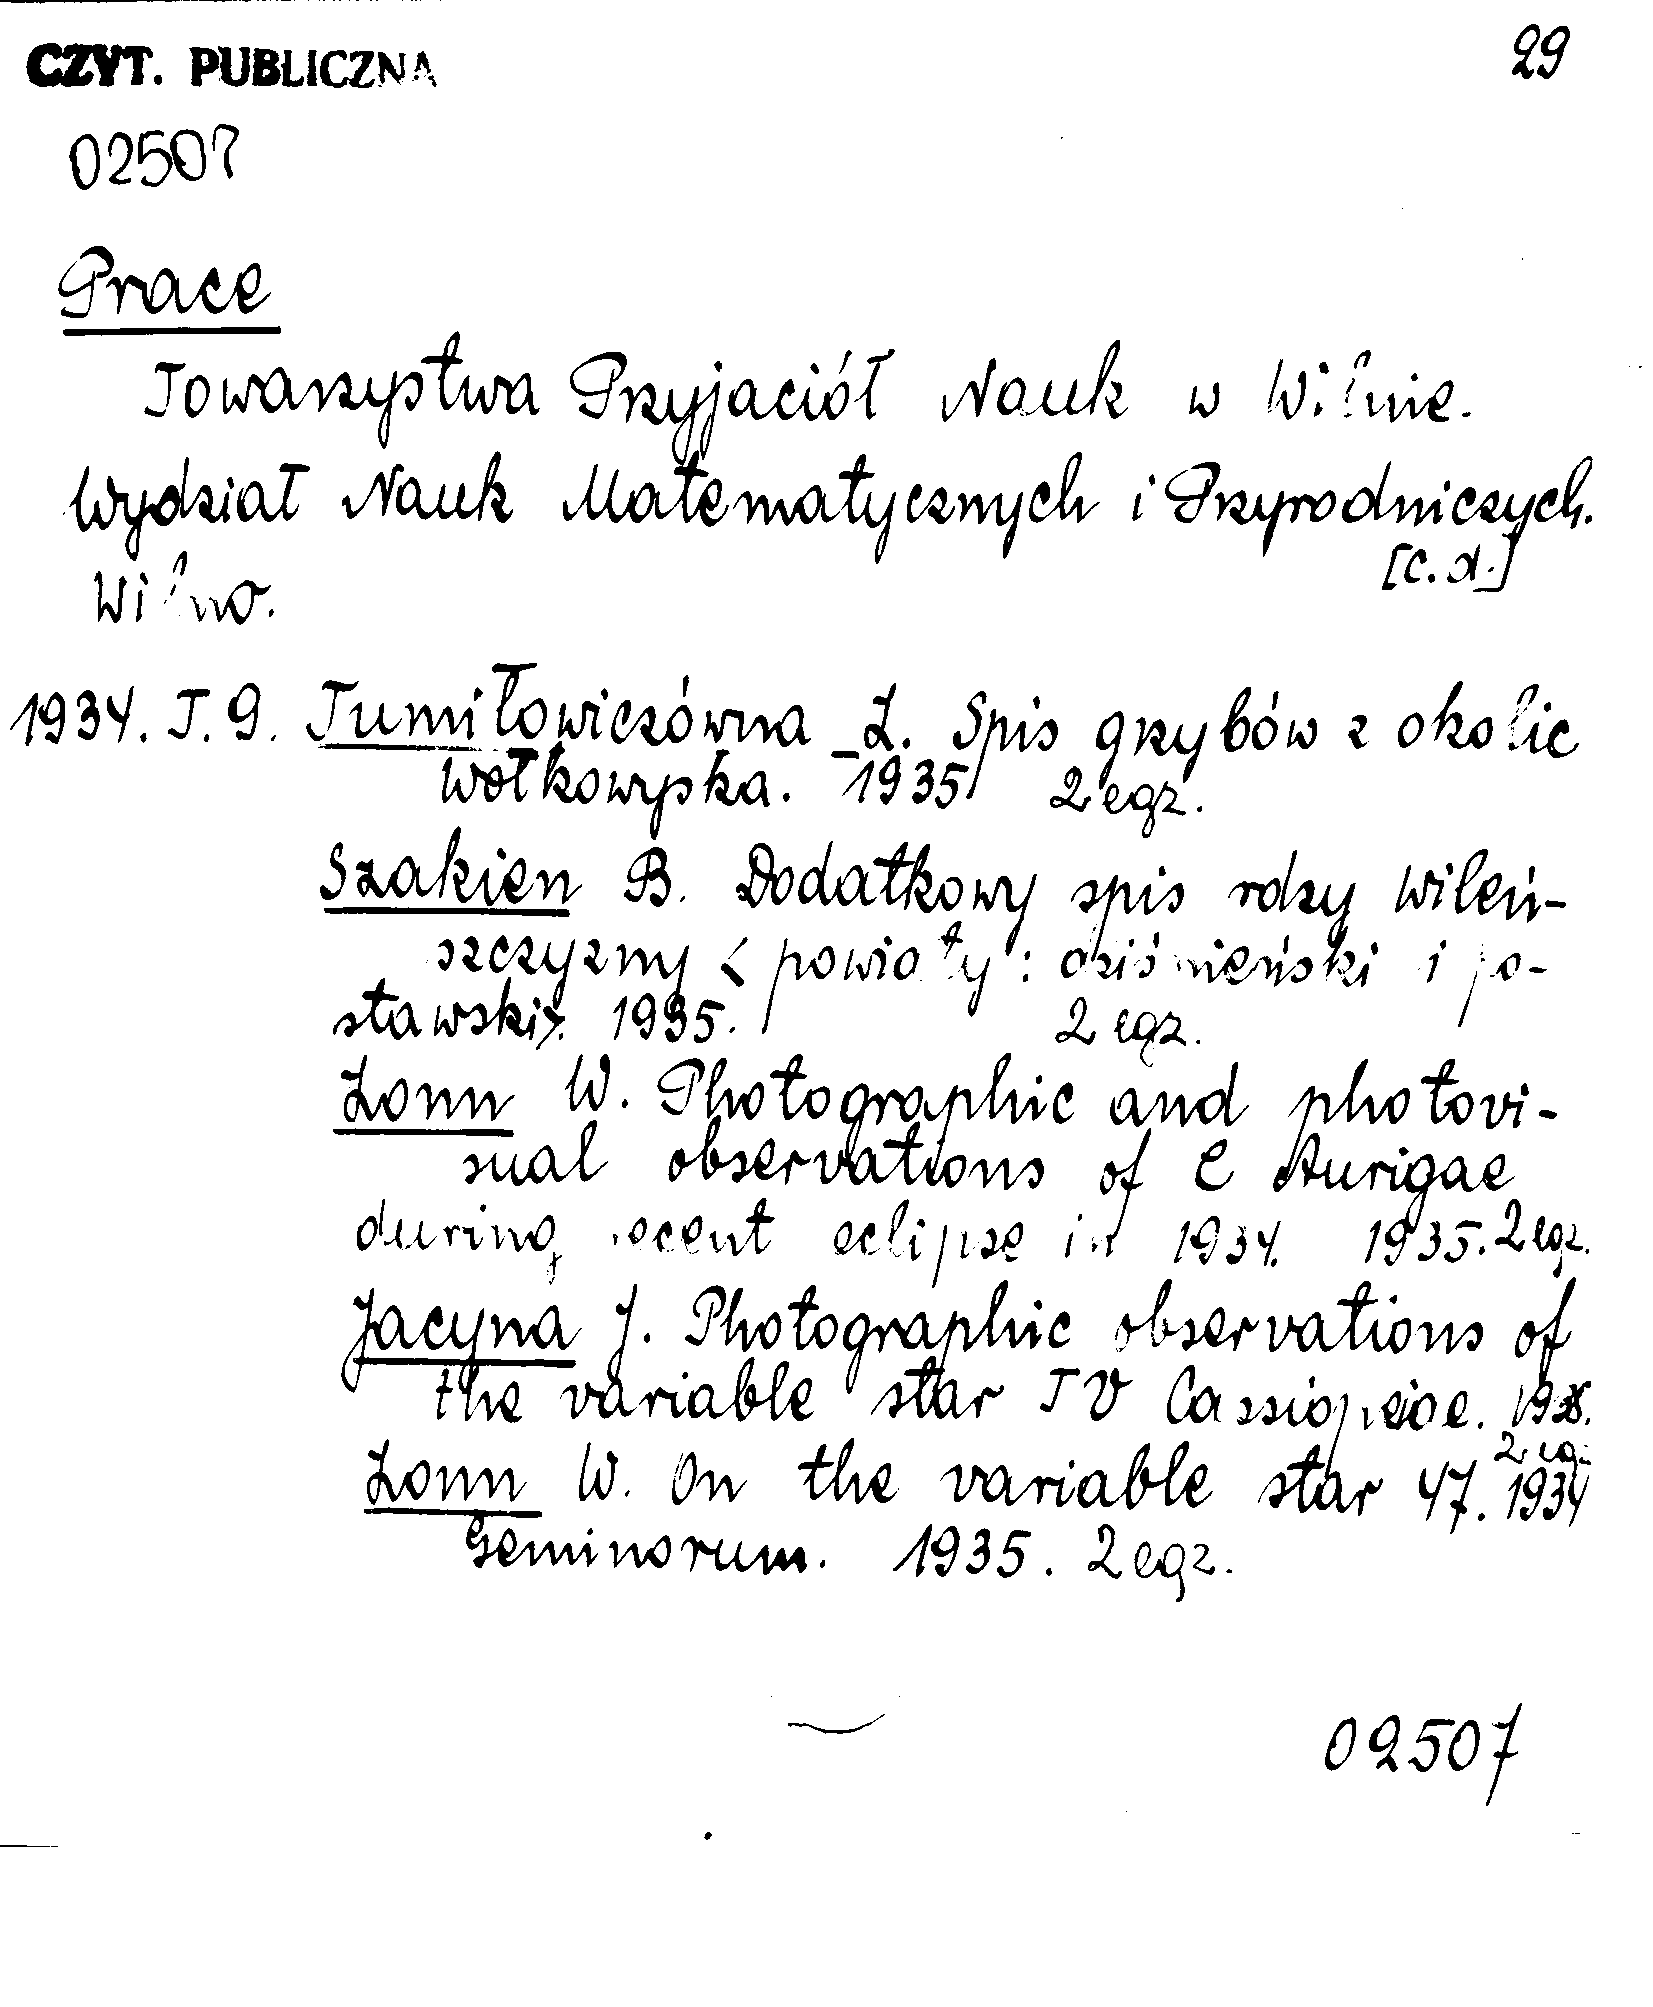 CZYT. PUBLICZNA
29
02507
Prace
Towarzystwa Przyjaciół Nauk w Wilnie.
Wydział Nauk Matematycznych i Przyrodniczych.
[c.d.]
Wilno.
1934. T. 9. Tumiłowiczówna L. Spis grzybów z okolic
Wołkowyska. 1935 2 egz.
Szakien B. Dodatkowy spis rdzy Wileń-
szczyzny < powiaty: dziśnieński i po-
stawski>. 1935. 2 egz.
Zonn W. Photographic and photovi-
sual observations of ε Aurigae
during recent eclipse in 1934. 1935. 2 egz.
Jacyna J. Photographic observations of
the variable star TV Cassiopeiae. 1935.
2 egz.
Zonn W. On the variable star 47. 1934
Geminorum. 1935. 2 egz.
02507